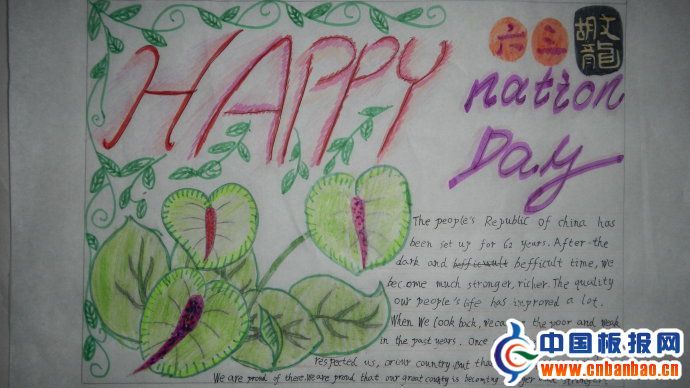 HAPPY
六三
胡文龍
nation
Day
The people's Republic Of China has
been set up for 62 years. After the
dark and befficult time, we
become much stronger, richer. The quality
our people's life has improved a lot.
When We look back, we can the poor and weak
in the past years. Once
respected us, or our country. But tha
We are proud of there. We are proud that our great country is becoming
中国板报网
www.cnbanbao.cn